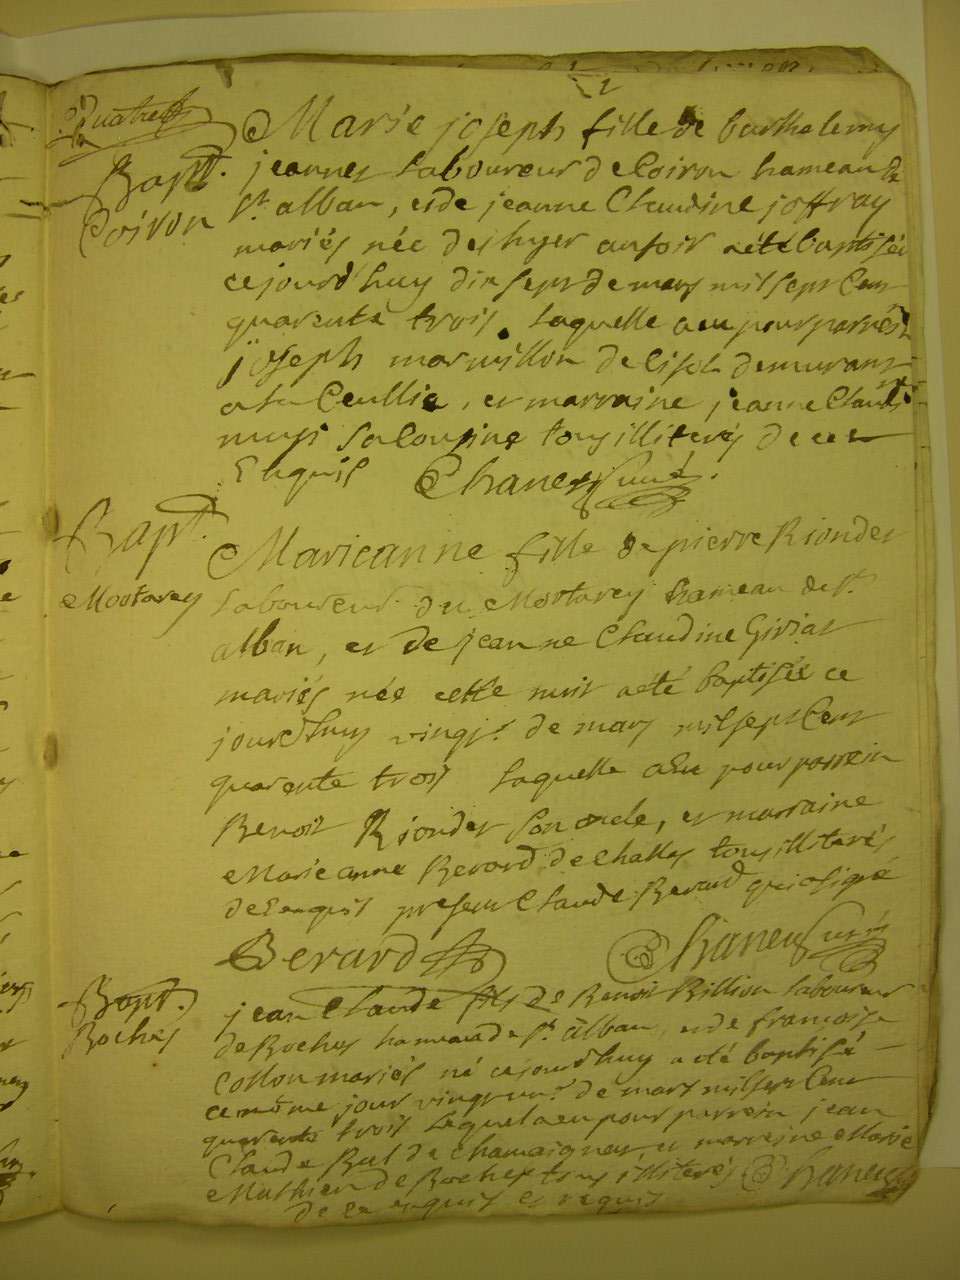 2
Quatre
Bapt.
Coiron
Marie joseph fille de barthelemy
jeannet laboureur de Coiron hameau de
St. alban, et de jeanne Claudine joffray
mariés née deshyer au soir a été baptisée
cejourdhuy dix sept de mars mil sept Cent
quarente trois. laquelle a eu pour parrein
joseph marmillon de demeurant
a la Ceullie, et marraine jeanne Claudi
sa Cousine tous illiterés de ce
Enquis Chanel Curé
Bapt.
Mortarey
Marieanne fille de pierre Riondet
laboureur du Mortarey hameau de st.
alban, et de jeanne Claudine Giriat
mariés née cette nuit a été baptisée ce
jourdhuy vingt. de mars mil sept Cent
quarente trois laquelle a Eu pour parrein
Benoit Riondet son oncle, et marraine
Marieanne Berard de Challes tous illiterés
de Enquis present Claude Berard qui a signé
Berard Chanel Curé
Bapt.
Roches
jean Claude fils de Benoit Billion laboureur
de Roches hameau de St. alban, et de francoise
Collon mariés né cejourdhuy a été baptisé
ce même jour vingt un. de mars mil sept Cent
quarente trois lequel a eu pour parrein jean
Claude de et marreine Marie
Mathieu de Roches tous illiterés Chanel
de ce enquis et requis